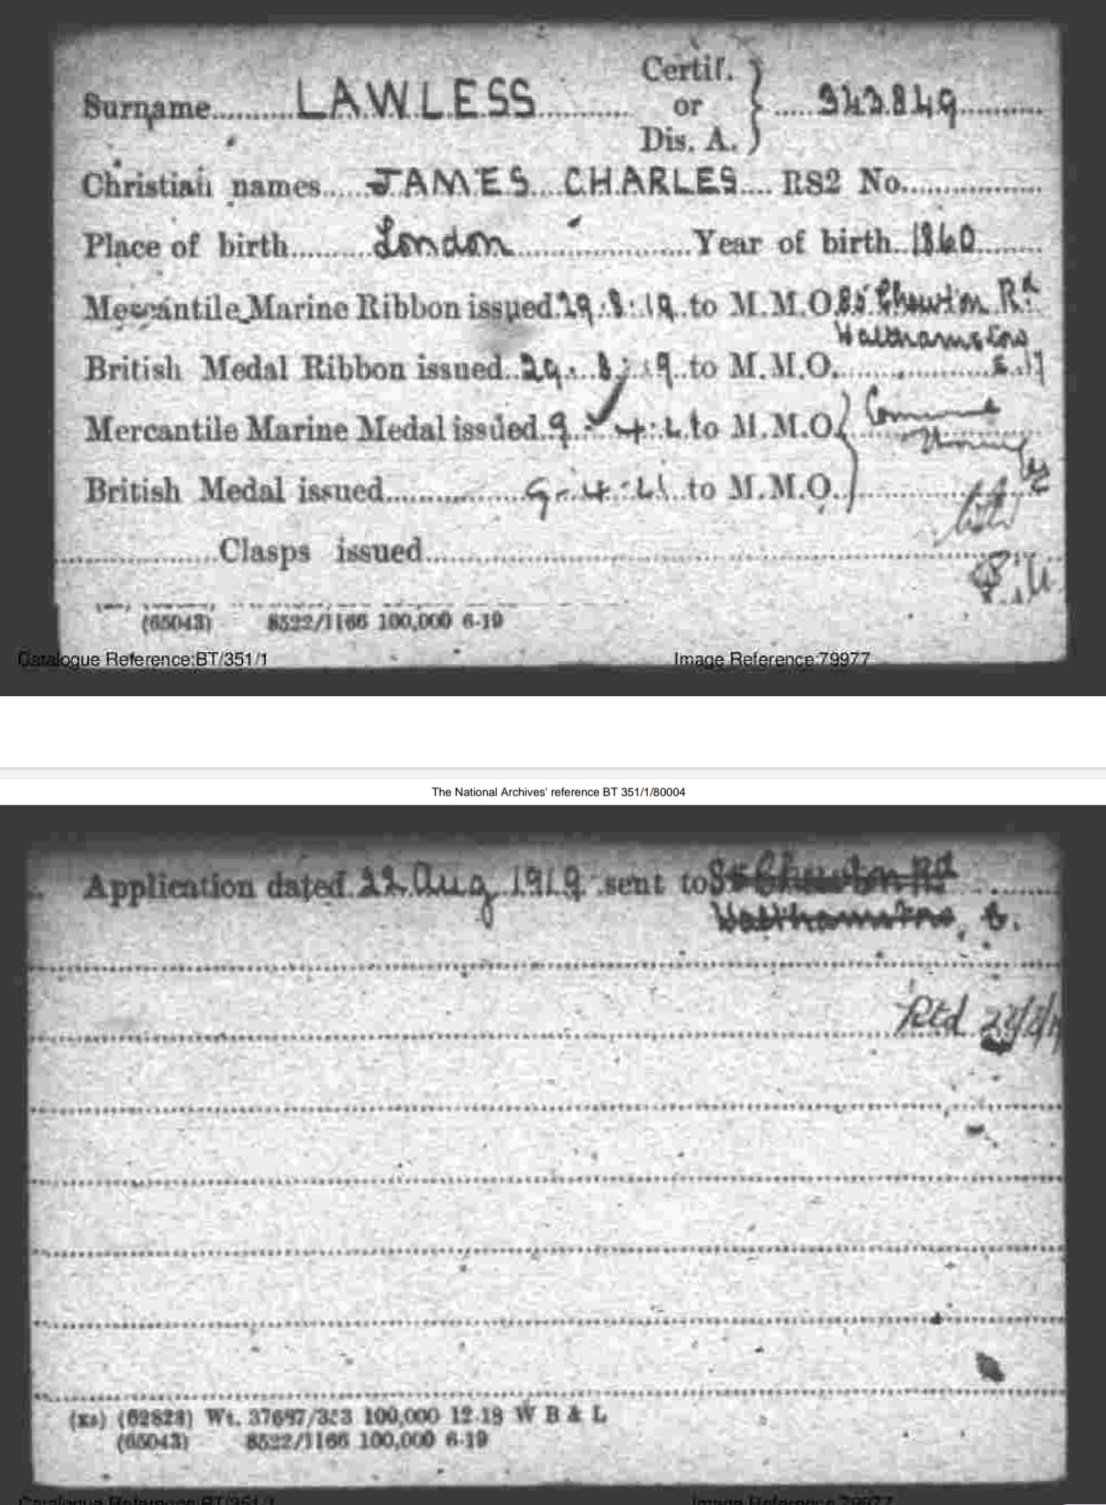 Certif.
Surname LAWLESS or 343849
Dis. A.
Christian names JAMES CHARLES RS2 No.
Place of birth London Year of birth 1860
Mercantile Marine Ribbon issued 29.8.19 to M.M.O. 85 Chewton Rd
Walthamstow
British Medal Ribbon issued 29.8.19 to M.M.O. E.17
Mercantile Marine Medal issued 9.4. to M.M.O.
British Medal issued 9.4. to M.M.O.
Clasps issued
(65043) 8522/1166 100,000 6-19
Catalogue Reference:BT/351/1 Image Reference:79977
The National Archives' reference BT 351/1/80004
Application dated 22 Aug 1919 sent to 85 Chewton Rd
Walthamstow, E.
Retd
(xs) (62828) Wt. 37697/323 100,000 12-18 W B & L
(65043) 8522/1166 100,000 6-19